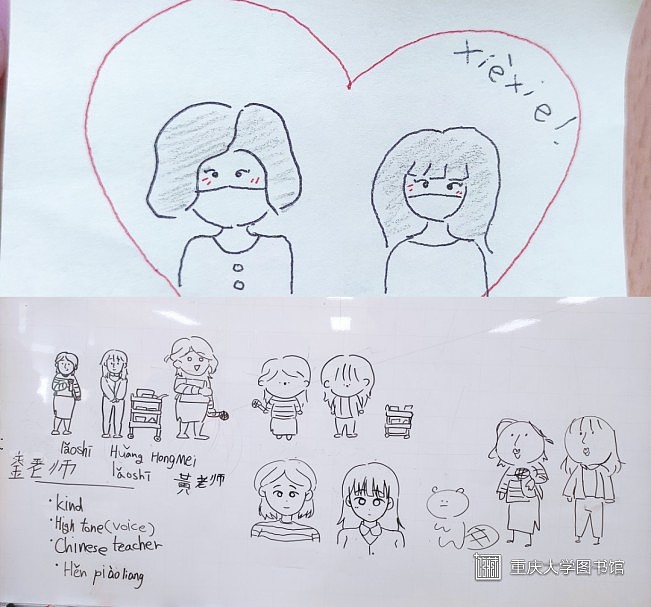 xièxie!
lǎoshī Huǎng HongMei
老师 lǎoshī 黃老师
· kind
· High tone(voice)
· Chinese teacher
· Hěn piàoliang
重庆大学图书馆